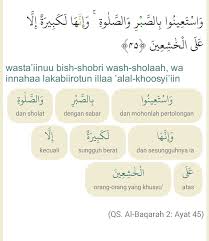 وَاسْتَعِيْنُوا بِالصَّبْرِ وَالصَّلٰوةِ ۗ وَاِنَّهَا لَكَبِيْرَةٌ اِلَّا
عَلَى الْخٰشِعِيْنَ ﴿٤٥﴾
wasta'iinuu bish-shobri wash-sholaah, wa
innahaa lakabiirotun illaa 'alal-khoosyi'iin
وَاسْتَعِيْنُوا بِالصَّبْرِ وَالصَّلٰوةِ
dan mohonlah pertolongan dengan sabar dan sholat
وَاِنَّهَا لَكَبِيْرَةٌ اِلَّا
dan sesungguhnya ia sungguh berat kecuali
عَلَى الْخٰشِعِيْنَ
atas orang-orang yang khusyu'
(QS. Al-Baqarah 2: Ayat 45)